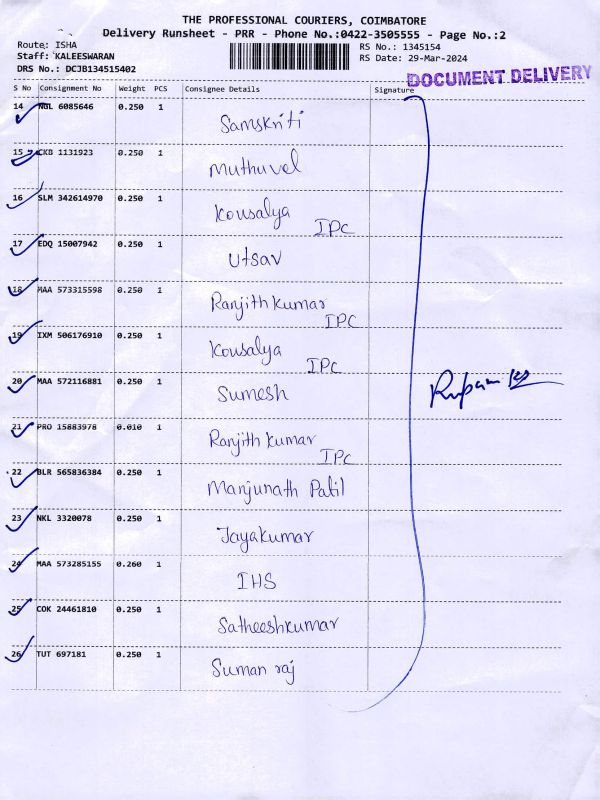 THE PROFESSIONAL COURIERS, COIMBATORE
Delivery Runsheet - PRR - Phone No.:0422-3505555 - Page No.:2
Route: ISHA
Staff: KALEESWARAN
DRS No.: DCJB134515402
RS No.: 1345154
RS Date: 29-Mar-2024
DOCUMENT DELIVERY
S No Consignment No Weight PCS Consignee Details Signature
14 NGL 6085646 0.250 1 Samskriti
15 CKB 1131923 0.250 1 Muthuvel
16 SLM 342614970 0.250 1 Kousalya
IPC
17 EDQ 15007942 0.250 1 Utsav
18 MAA 573315598 0.250 1 Ranjith kumar
IPC
19 IXM 506176910 0.250 1 Kousalya
IPC
20 MAA 572116881 0.250 1 Sumesh
21 PRO 15883978 0.010 1 Ranjith kumar
IPC
22 BLR 565836384 0.250 1 Manjunath Patil
23 NKL 3320078 0.250 1 Jayakumar
24 MAA 573285155 0.260 1 IHS
25 COK 24461810 0.250 1 Satheeshkumar
26 TUT 697181 0.250 1 Suman raj
Rupam